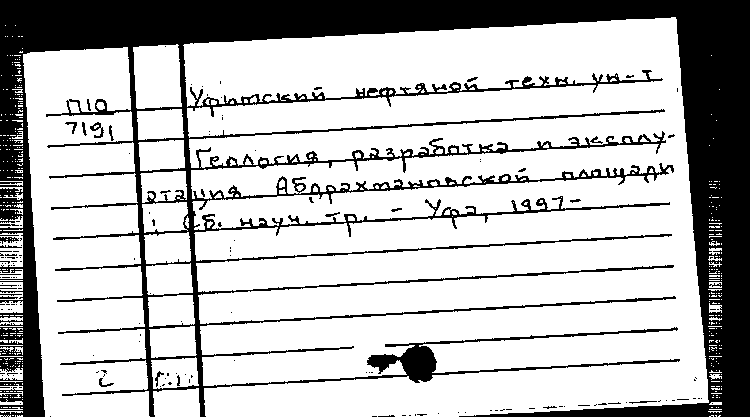 П10
7191
Уфимский нефтяной техн. ун-т
Геология, разработка и эксплу-
атация Абдрахмановской площади
: Сб. науч. тр. - Уфа, 1997-
2